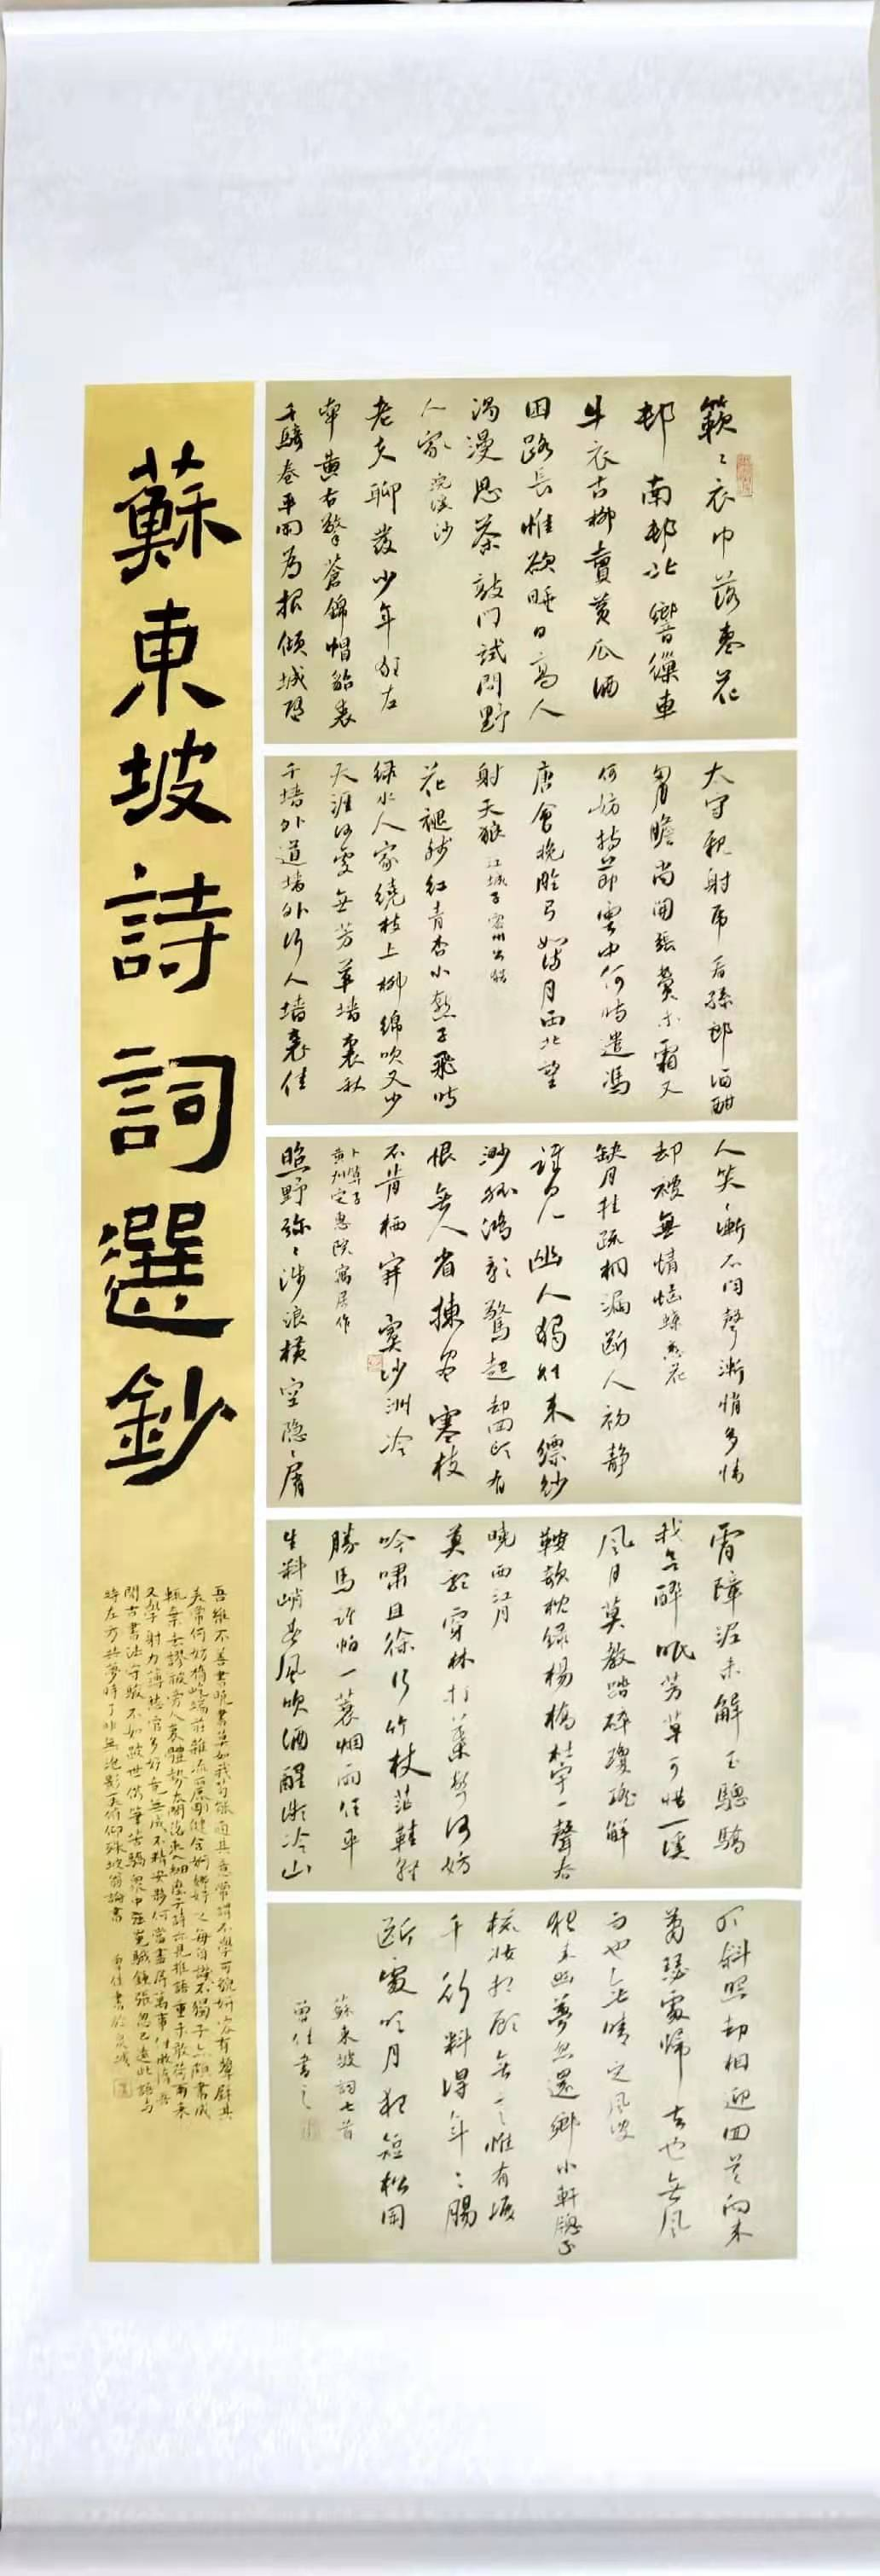 蘇東坡詩詞選鈔
簌〻衣巾落棗花
邨南邨北響繅車
牛衣古柳賣黃瓜酒
困路長惟欲睡日高人
渴漫思茶敲門試問野
人家 浣溪沙
老夫聊發少年狂左
牽黃右擎蒼錦帽貂裘
千騎卷平岡為報傾城隨
太守親射虎看孫郎酒酣
胸膽尚開張鬢未霜又
何妨持節雲中何時遣馮
唐會挽雕弓如滿月西北望
射天狼 江城子密州出獵
花褪殘紅青杏小燕子飛時
綠水人家繞枝上柳綿吹又少
天涯何處無芳草墙裏秋
千墙外道墙外行人墙裏佳
人笑〻漸不聞聲漸悄多情
却被無情惱 蝶戀花
缺月挂疏桐漏斷人初静
誰見幽人獨往來縹緲
渺孤鴻影驚起却回頭有
恨無人省揀盡寒枝
不肯栖寂寞沙洲冷
卜算子
黃州定惠院寓居作
照野瀰〻淺浪橫空隐〻層
霄障泥未解玉驄驕
我欲醉眠芳草可惜一溪
風月莫教踏碎瓊瑤解
鞍欹枕綠楊橋杜宇一聲春
曉 西江月
莫聽穿林打葉聲何妨
吟嘯且徐行竹杖芒鞋輕
勝馬誰怕一蓑烟雨任平
生料峭春風吹酒醒微冷山
頭斜照却相迎回首向來
蕭瑟處歸去也無風
雨也無晴 定風波
夜來幽夢忽還鄉小軒窗正
梳妝相顧無言惟有淚
千行料得年〻腸
斷處明月夜短松岡
蘇東坡詞七首
曾佳書之
吾雖不善書曉書莫如我苟能通其意常謂不學可貌妍容有顰璧其
美常何妨橢端莊雜流麗剛健含婀娜好之每自譏不獨子亦頗書成
輒棄去謬被旁人裹體勢本闊落結束入細麼子詩亦見推語重未敢荷爾來
又學射力薄愁官多好竟無成不精安夥何當盡屏萬事付懶惰吾
聞古書法守駿不如跛世俗筆苦驕衆中強嵬騀鍾張忽已遠此語與
時左 坡翁論書 曾佳書於